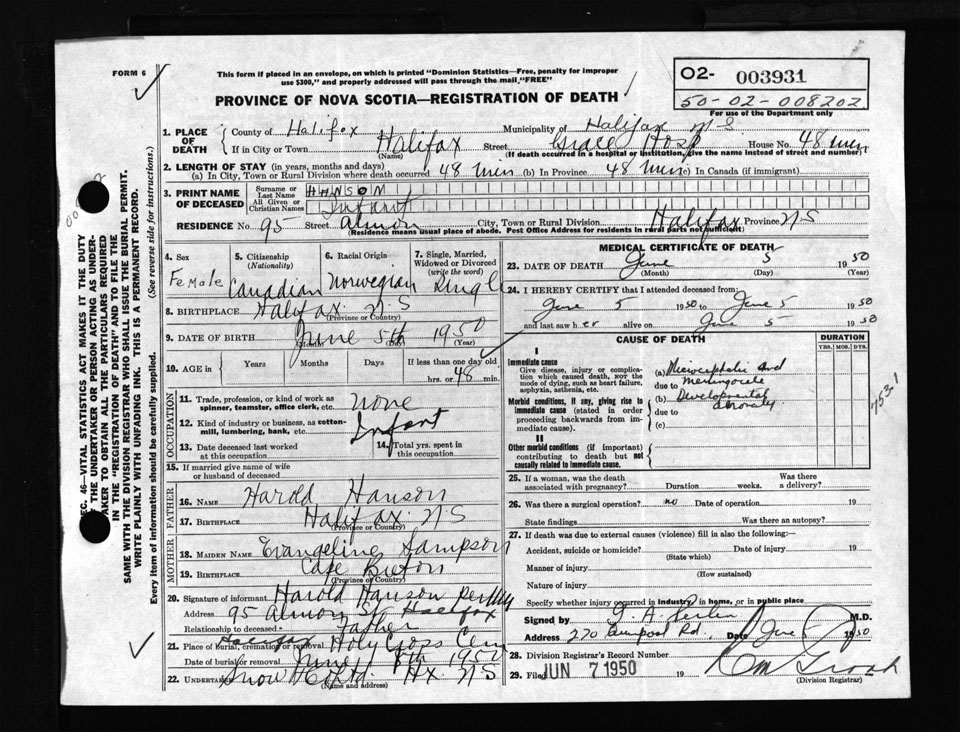 FORM 6
This form if placed in an envelope, on which is printed "Dominion Statistics—Free, penalty for improper
use $300," and properly addressed will pass through the mail, "FREE"
PROVINCE OF NOVA SCOTIA—REGISTRATION OF DEATH
O2- 003931
50-02-008202
For use of the Department only
1. PLACE OF DEATH
County of Halifax Municipality of Halifax N S
If in City or Town Halifax Street Grace Hosp House No. 48 min
(Name) (If death occurred in a hospital or institution, give the name instead of street and number)
2. LENGTH OF STAY (in years, months and days)
(a) In City, Town or Rural Division where death occurred 48 min (b) In Province 48 min (c) In Canada (if immigrant)
3. PRINT NAME OF DECEASED
Surname or Last Name HANSON
All Given or Christian Names Infant
RESIDENCE No. 95 Street Almon City, Town or Rural Division Halifax Province N S
(Residence means usual place of abode. Post Office Address for residents in rural parts not sufficient)
4. Sex Female
5. Citizenship (Nationality) Canadian
6. Racial Origin Norwegian
7. Single, Married, Widowed or Divorced (write the word) Single
8. BIRTHPLACE Halifax N.S
(Province or Country)
9. DATE OF BIRTH June 5th 1950
(Month) (Day) (Year)
10. AGE in Years Months Days If less than one day old
hrs. or 48 min.
OCCUPATION
11. Trade, profession, or kind of work as spinner, teamster, office clerk, etc. none
12. Kind of industry or business, as cotton-mill, lumbering, bank, etc. Infant
13. Date deceased last worked at this occupation
14. Total yrs. spent in this occupation
15. If married give name of wife or husband of deceased
FATHER
16. NAME Harold Hanson
17. BIRTHPLACE Halifax N.S
(Province or Country)
MOTHER
18. MAIDEN NAME Evangeline Sampson
19. BIRTHPLACE Cape Breton
(Province or Country)
20. Signature of informant Harold Hanson per
Address 95 Almon St. Halifax
Relationship to deceased Father
21. Place of burial, cremation or removal Halifax Holy Cross Cem
Date of burial or removal June 1950
22. UNDERTAKER Snow Hx. N S
(Name and address)
MEDICAL CERTIFICATE OF DEATH
23. DATE OF DEATH June 5 1950
(Month) (Day) (Year)
24. I HEREBY CERTIFY that I attended deceased from:
June 5 1950 to June 5 1950
and last saw her alive on June 5 1950
CAUSE OF DEATH
DURATION
YRS. MOS. DYS.
I
Immediate cause
Give disease, injury or complication which caused death, not the mode of dying, such as heart failure, asphyxia, asthenia, etc.
(a) Microcephalic and
due to meningocele
Morbid conditions, if any, giving rise to immediate cause (stated in order proceeding backwards from immediate cause).
(b) Developmental
due to
(c)
II
Other morbid conditions (if important) contributing to death but not causally related to immediate cause.
753-1
25. If a woman, was the death associated with pregnancy? Duration weeks. Was there a delivery?
26. Was there a surgical operation? no Date of operation 19
State findings Was there an autopsy?
27. If death was due to external causes (violence) fill in also the following:—
Accident, suicide or homicide? Date of injury 19
(State which)
Manner of injury
(How sustained)
Nature of injury
Specify whether injury occurred in industry, in home, or in public place
Signed by G. A M.D.
Address 270 Rd., Date June 1950
28. Division Registrar's Record Number
29. Filed JUN 7 1950 19
(Division Registrar)
SEC. 46—VITAL STATISTICS ACT MAKES IT THE DUTY
OF THE UNDERTAKER OR PERSON ACTING AS UNDERTAKER TO OBTAIN ALL THE PARTICULARS REQUIRED
IN THE "REGISTRATION OF DEATH" AND TO FILE THE
SAME WITH THE DIVISION REGISTRAR WHO SHALL ISSUE THE BURIAL PERMIT.
WRITE PLAINLY WITH UNFADING INK. THIS IS A PERMANENT RECORD.
Every item of information should be carefully supplied. (See reverse side for instructions.)